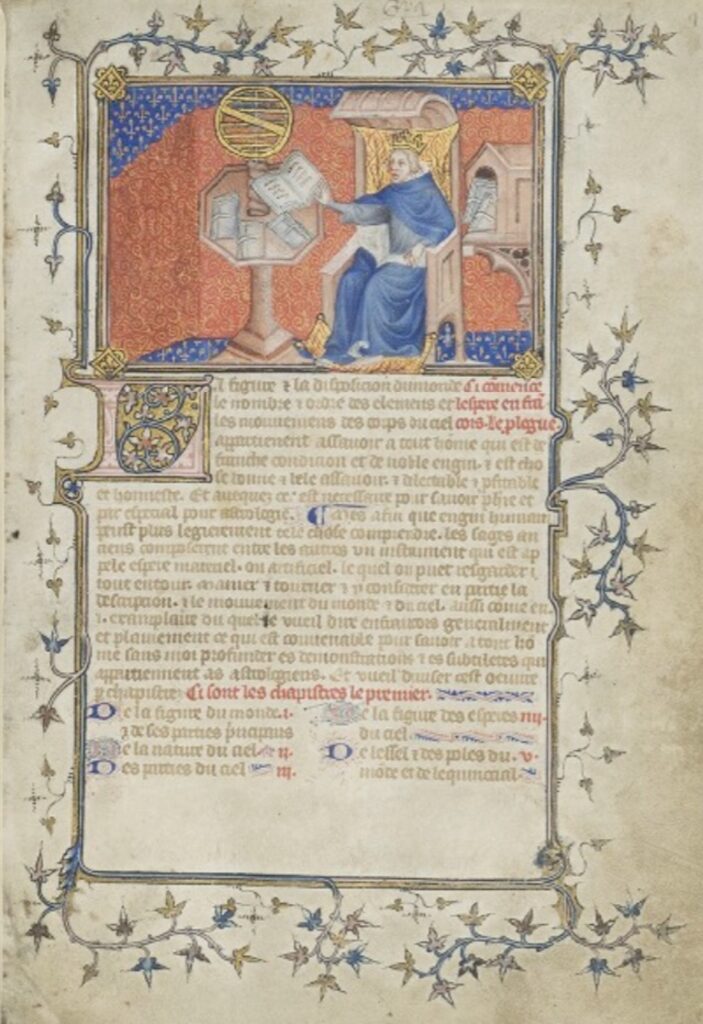 a figure & la disposicion du monde Ci comence
le nombre & ordre des elemens et lespere en fra
les mouvemens des corps du ciel cois. le plogue
appartienent assavoir a tout home qui est de
franche condicion et de noble engin. & est cho
se bonne & bele assavoir. & delectable & pfitable
et honneste. Et avecques ce. est necessaire pour savoir phie et
par especial pour astrologie. Mais afin que engin humain
puist plus legierement tele chose comprendre. les sages an
ciens composerent entre les autres un instrument qui est ap
pele espere materiel. ou artificiel. le quel on puet resgarder
tout entour. manier & tourner & y considerer en partie la
description. & le mouvement du monde & du ciel. aussi come en
exemplaire du quel je vueil dire en francois generalment
et plainement ce qui est convenable pour savoir a tout ho
me sans moi profunder es demonstracions & es subtiletes qui
appartienent as astrologiens. Et vueil diviser cest oeuvre
p chapistres Ci sont les chapistres le premier.
De la figure du monde. i.
& de ses parties principaus
De la nature du ciel ii.
Des parties du ciel iii.
De la figure des esperes iiii.
du ciel
De lessel & des poles du v.
mode et de lequinocial